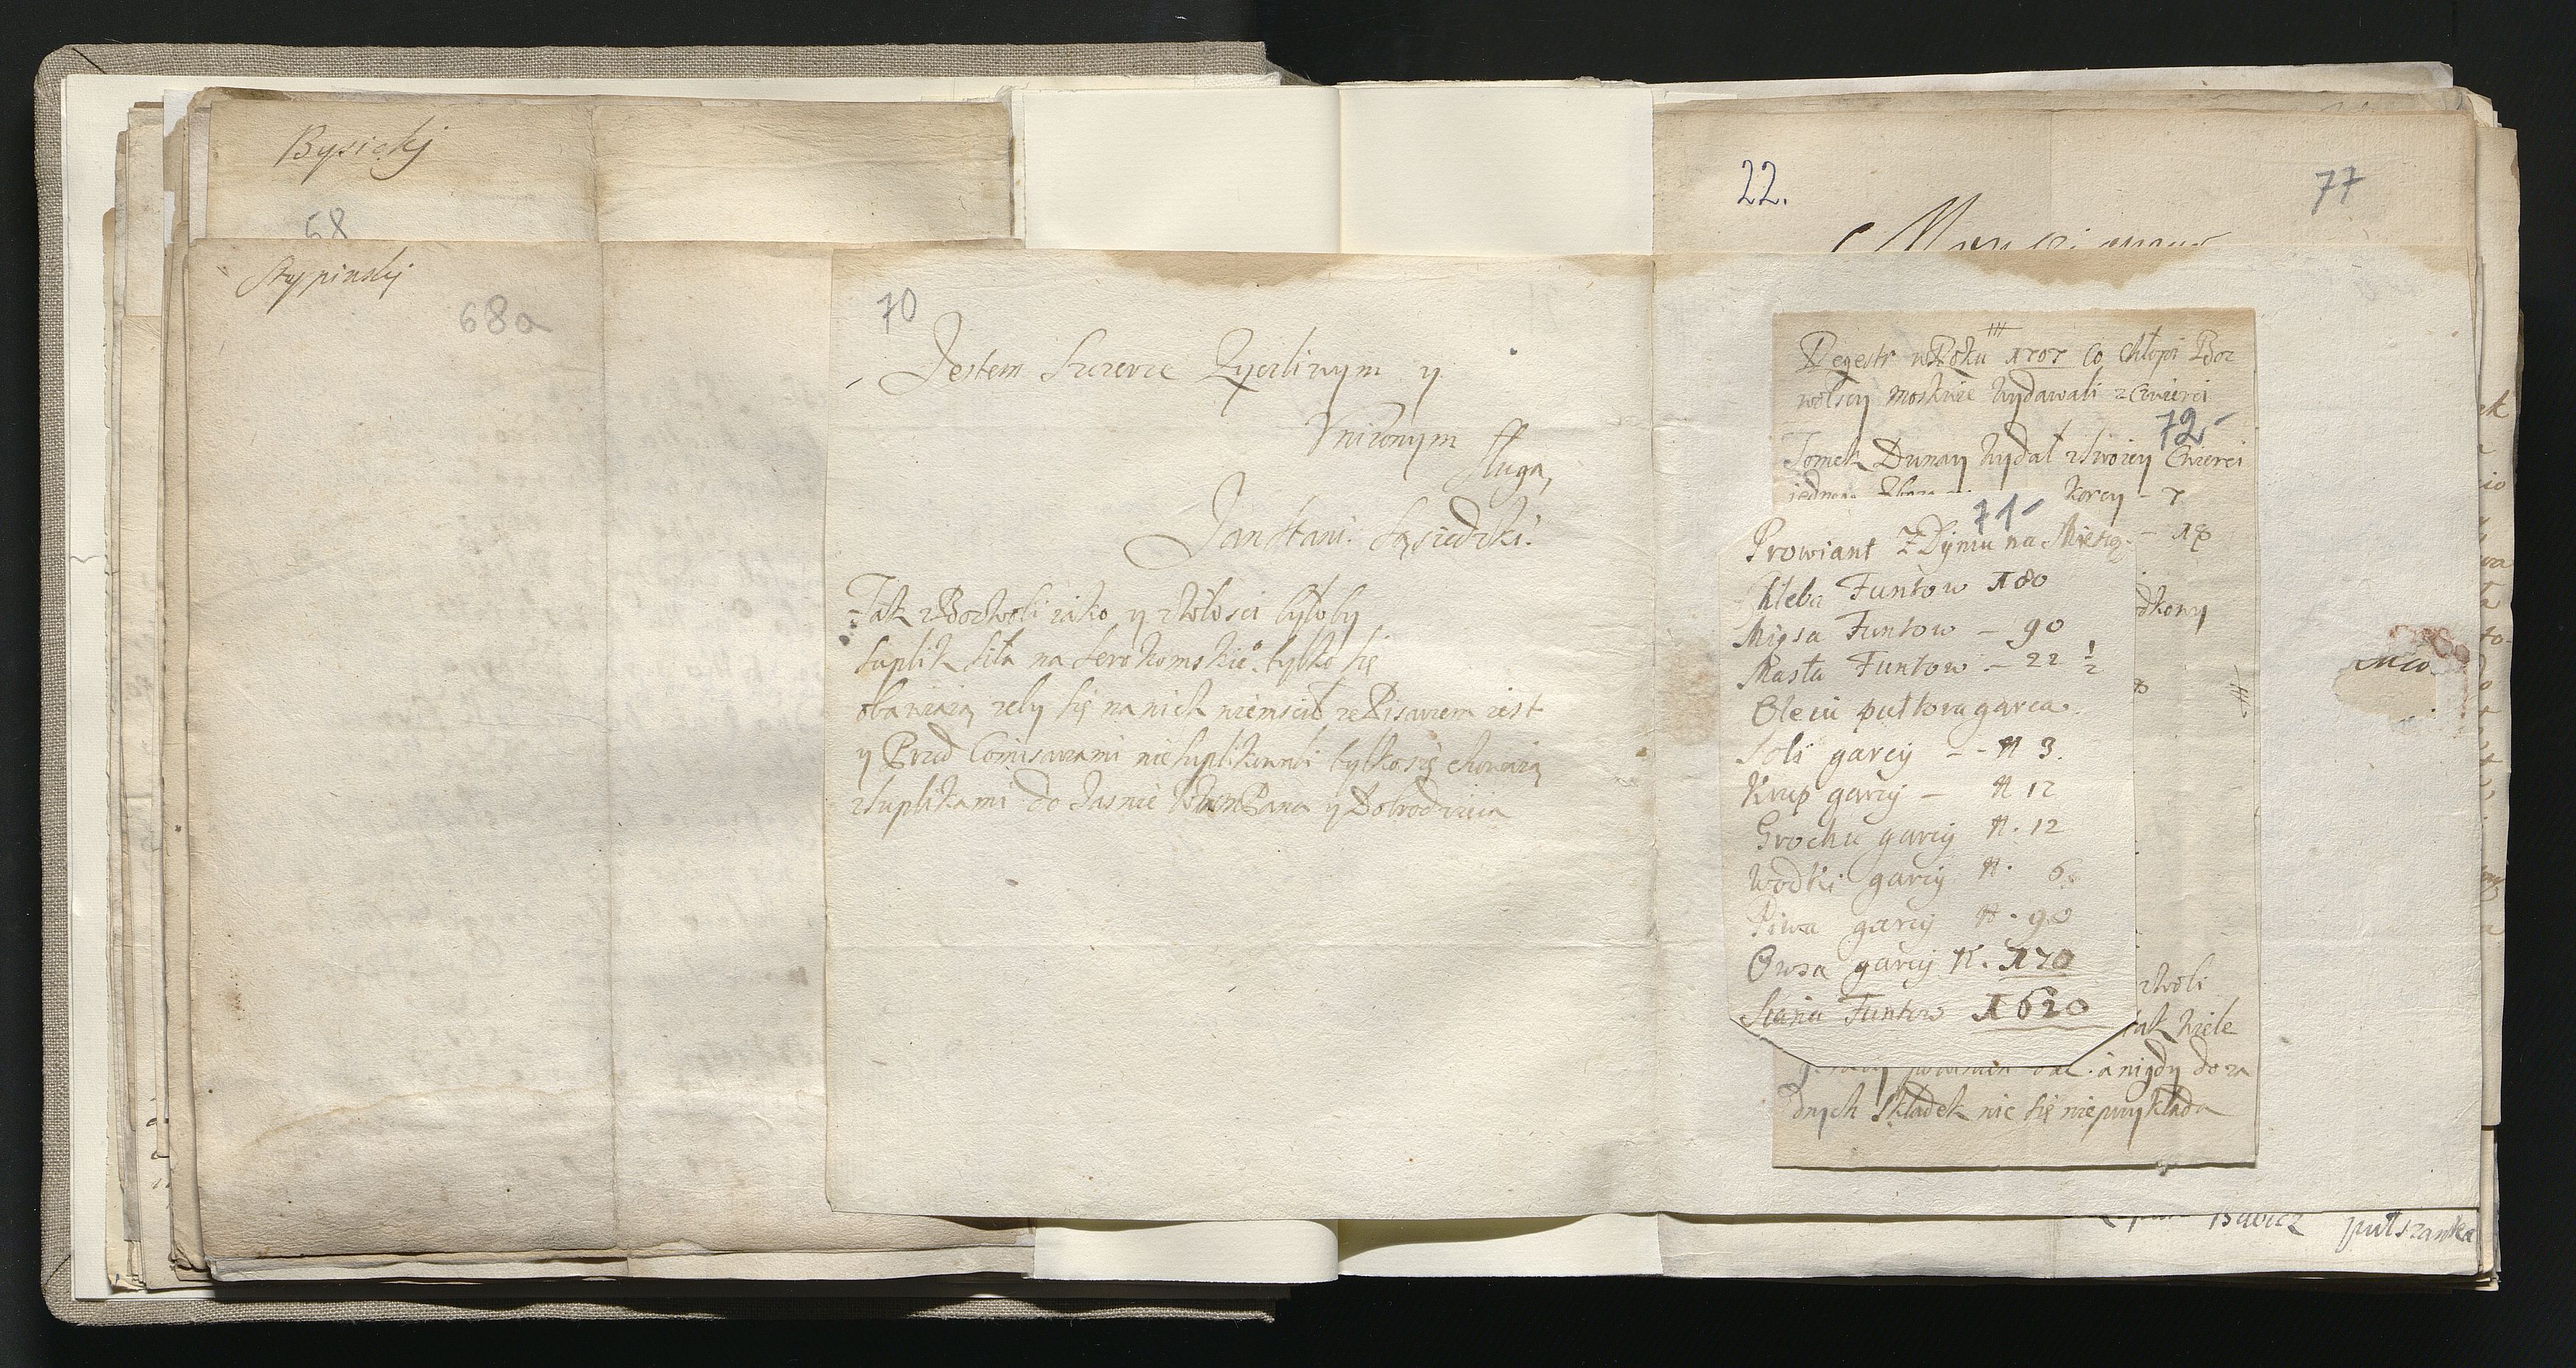 Bysickj
68
Stypinskj
68a
70
Jestem szczerze Zyczliwym y
Vnizonym
sługą,
Jan Stani: Sąsiedzki.
Tak z Bozwoli iako y z Włosci byłoby
suplik siła na Serokomskie°. tylko się
obawiaią zeby się na nich niemscił ze Pisarzem iest
y Przed Comisarzami niesuplikowali tylko się chowaią
z suplikami do Jasnie Pana y Dobrodzieia
22.
77
Regestr w Roku 1707 co Chłopi Boz
wolscy Moskwie wydawali z Cwierci
72
Tomek Dunay wydał z swoiey Cwierci
korcy - 7
- 18
71
Prowiant Z Dymu na Miesią.
Chleba Funtow 180
Mięsa Funtow - 90
Masła Funtow - 22 1/2
Oleiu pułtora garca.
Soli garcy - - N 3.
Krup garcy - N 12
Grochu garcy N. 12
Wodki garcy N. 6.
Piwa garcy N. 90
Owsa garcy N. 170
Siana Funtow 1620
zwoli
tak wiele
powinien dac. a nigdy do za
dnych składek nic się nieprzykłada
Babicz pułszanka